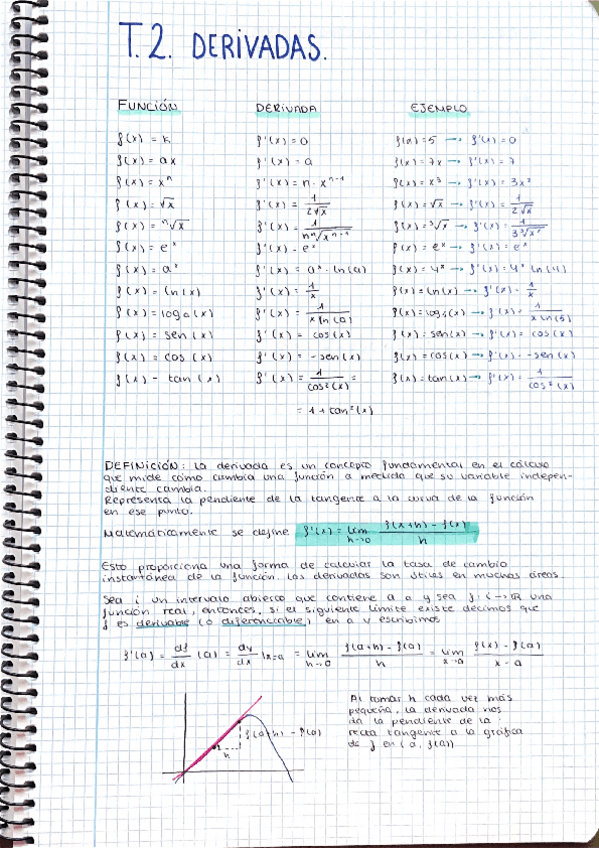 T.2. DERIVADAS.
FUNCIÓN DERIVADA EJEMPLO
f(x) = k f'(x) = 0 f(x) = 5 → f'(x) = 0
f(x) = ax f'(x) = a f(x) = 7x → f'(x) = 7
f(x) = xⁿ f'(x) = n · xⁿ⁻¹ f(x) = x³ → f'(x) = 3x²
f(x) = √x f'(x) = 1/(2√x) f(x) = √x → f'(x) = 1/(2√x)
f(x) = ⁿ√x f'(x) = 1/(n ⁿ√xⁿ⁻¹) f(x) = ³√x → f'(x) = 1/(3 ³√x²)
f(x) = eˣ f'(x) = eˣ f(x) = eˣ → f'(x) = eˣ
f(x) = aˣ f'(x) = aˣ · ln(a) f(x) = 4ˣ → f'(x) = 4ˣ ln(4)
f(x) = ln(x) f'(x) = 1/x f(x) = ln(x) → f'(x) = 1/x
f(x) = logₐ(x) f'(x) = 1/(x ln(a)) f(x) = log₅(x) → f'(x) = 1/(x ln(5))
f(x) = sen(x) f'(x) = cos(x) f(x) = sen(x) → f'(x) = cos(x)
f(x) = cos(x) f'(x) = -sen(x) f(x) = cos(x) → f'(x) = -sen(x)
f(x) = tan(x) f'(x) = 1/cos²(x) = f(x) = tan(x) → f'(x) = 1/cos²(x)
= 1 + tan²(x)
DEFINICIÓN: La derivada es un concepto fundamental en el cálculo
que mide cómo cambia una función a medida que su variable indepen-
diente cambia.
Representa la pendiente de la tangente a la curva de la función
en ese punto.
Matemáticamente se define f'(x) = lim h→0 (f(x+h) - f(x))/h
Esto proporciona una forma de calcular la tasa de cambio
instantánea de la función. Las derivadas son útiles en muchas áreas.
Sea i un intervalo abierto que contiene a a y sea f: i → ℝ una
función real, entonces, si el siguiente límite existe decimos que
f es derivable (o diferenciable) en a y escribimos
f'(a) = df/dx (a) = dy/dx |x=a = lim h→0 (f(a+h) - f(a))/h = lim x→a (f(x) - f(a))/(x - a)
Al tomar h cada vez más
pequeña, la derivada nos
da la pendiente de la
recta tangente a la gráfica
de f en (a, f(a))
f(a+h) - f(a)
h